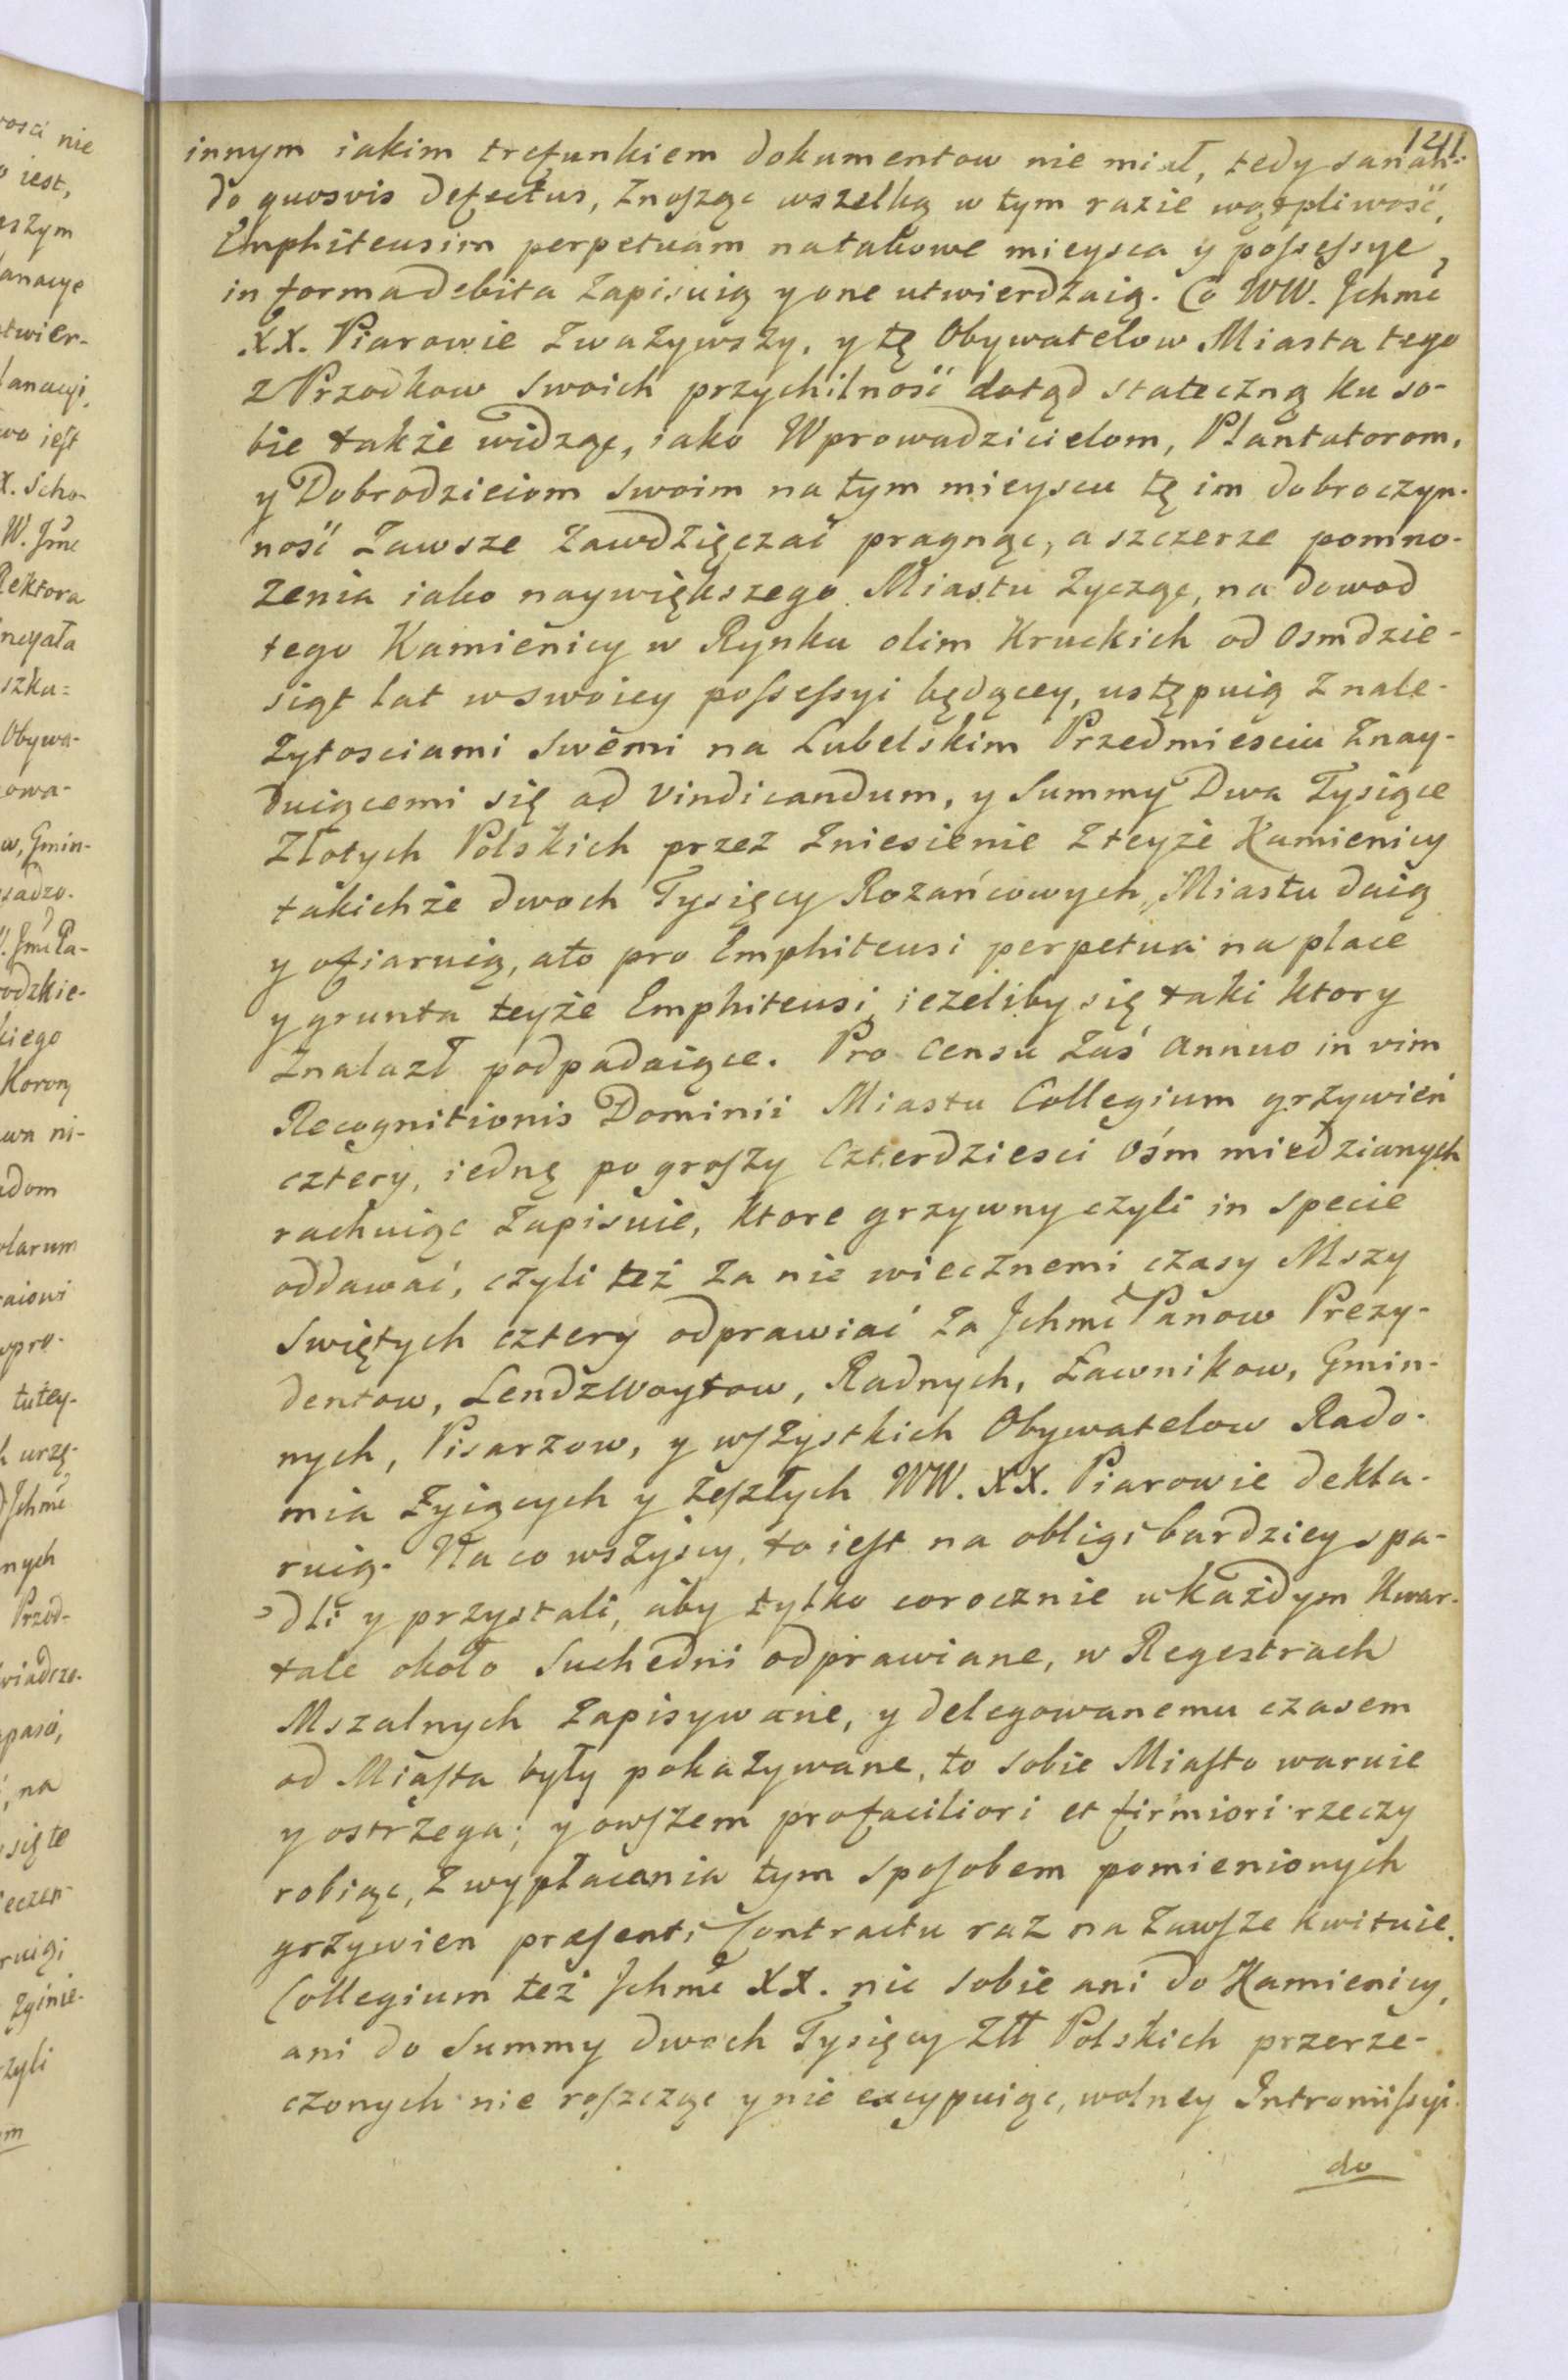 1211
innym iakim trefunkiem dokumentow nie miał, tedy sanan-
do quosvis defectus, znosząc wszelką w tym razie wątpliwość,
Emphiteusim perpetuam natakowe mieysca y possessye,
in forma debita zapisuią y one utwierdzaią. Co WW. Jchmć
XX. Piarowie zważywszy, y tę Obywatelow Miasta tego
z Przodkow swoich przychilność dotąd stateczną ku so-
bie także widząc, iako Wprowadzicielom, Plantatorom,
y Dobrodzieiom swoim na tym mieyscu tę im dobroczyn-
ność zawsze zawdzięczać pragnąc, a szczerze pomno-
żenia iako naywiększego Miastu życząc, na dowod
tego Kamienicy w Rynku olim Kruckich od osmdzie-
siąt lat w swoiey possessyi będącey, ustępuią z nale-
żytosciami swemi na Lubelskim Przedmiesciu znay-
duiącemi się ad vindicandum, y Summy Dwa Tysiące
Złotych Polskich przez zniesienie z teyże Kamienicy
takichże dwoch Tysięcy Rożańcowych, Miastu daią
y ofiaruią, a to pro Emphiteusi perpetua na place
y grunta teyże Emphiteusi, ieżeliby się taki ktory
znalazł podpadaiące. Pro Censu zaś annuo in vim
Recognitionis Dominii Miastu Collegium grzywień
cztery, iednę po groszy czterdziesci ośm miedzianych
rachuiąc zapisuie, ktore grzywny czyli in specie
oddawać, czyli też za nie wiecznemi czasy Mszy
Swiętych cztery odprawiać za Jchmć Panow Prezy-
dentow, LendzWoytow, Radnych, Ławnikow, Gmin-
nych, Pisarzow, y wszystkich Obywatelow Rado-
mia żyiących y zeszłych WW. XX. Piarowie dekla-
ruią. Na co wszyscy, to iest na obligi bardziey spa-
dli y przystali, aby tylko corocznie w każdym Kwar-
tale około Suchedni odprawiane, w Regestrach
Mszalnych zapisywane, y delegowanemu czasem
od Miasta były pokazywane, to sobie Miasto waruie
y ostrzega; y owszem pro faciliori et firmiori rzeczy
robiąc, z wypłacania tym sposobem pomienionych
grzywien præsenti Contractu raz na zawsze kwituie.
Collegium też Jchmć XX. nic sobie ani do Kamienicy,
ani do Summy dwoch Tysięcy Złł Polskich przerze-
czonych nie roszcząc y nie excypuiąc, wolney Intromissyi
do